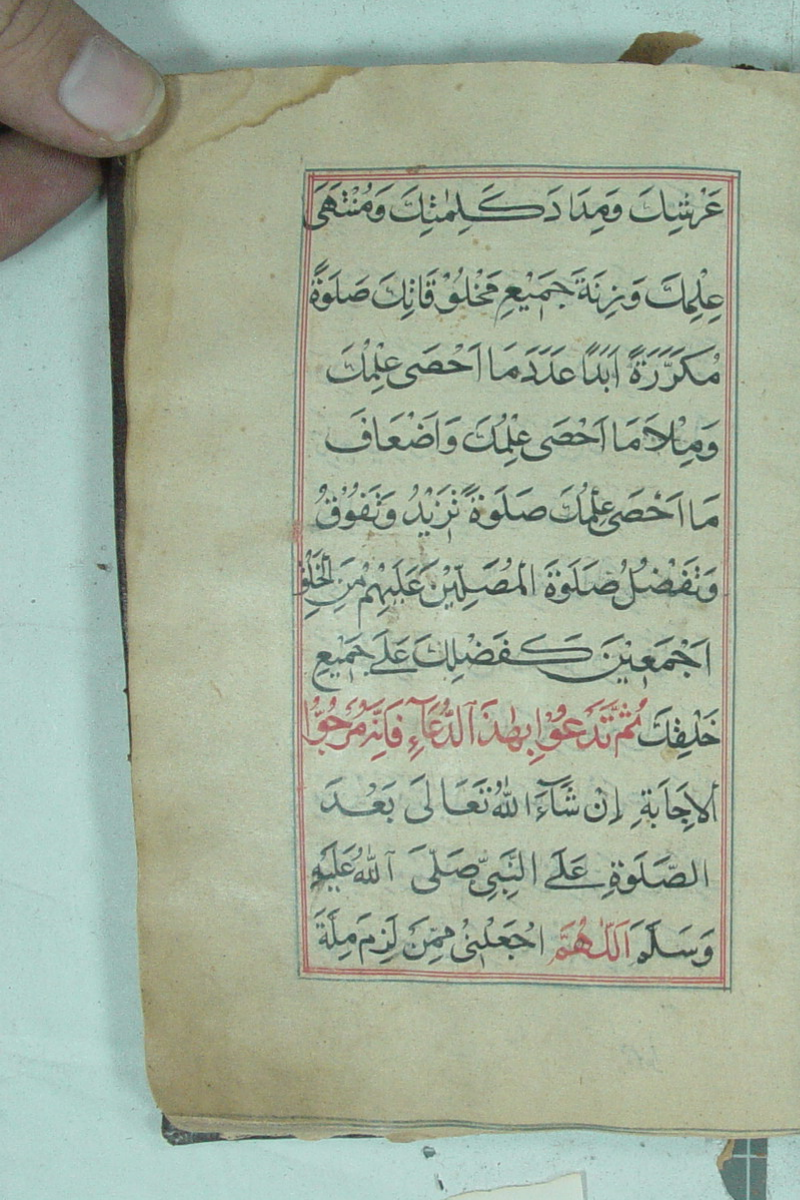 عَرْشِكَ وَمِدَادَ كَلِمٰتِكَ وَمُنْتَهَى
عِلْمِكَ وَزِنَةَ جَمِيْعِ مَخْلُوْقَاتِكَ صَلٰوةً
مُكَرَّرَةً اَبَدًا عَدَدَ مَا اَحْصٰى عِلْمُكَ
وَمِلْاَ مَا اَحْصٰى عِلْمُكَ وَاَضْعَافَ
مَا اَحْصٰى عِلْمُكَ صَلٰوةً تَزِيْدُ وَتَفُوْقُ
وَتَفْضُلُ صَلٰوةَ الْمُصَلِّيْنَ عَلَيْهِمْ مِنَ الْخَلْقِ
اَجْمَعِيْنَ كَفَضْلِكَ عَلٰى جَمِيْعِ
خَلْقِكَ ثُمَّ تَدْعُوْا بِهٰذَا الدُّعَآءِ فَاِنَّهٗ مَرْجُوُّا
الْاِجَابَةِ اِنْ شَآءَ اللّٰهُ تَعَالٰى بَعْدَ
الصَّلٰوةِ عَلَى النَّبِيِّ صَلَّى اللّٰهُ عَلَيْهِ
وَسَلَّمَ اَللّٰهُمَّ اجْعَلْنِيْ مِمَّنْ لَزِمَ مِلَّةَ